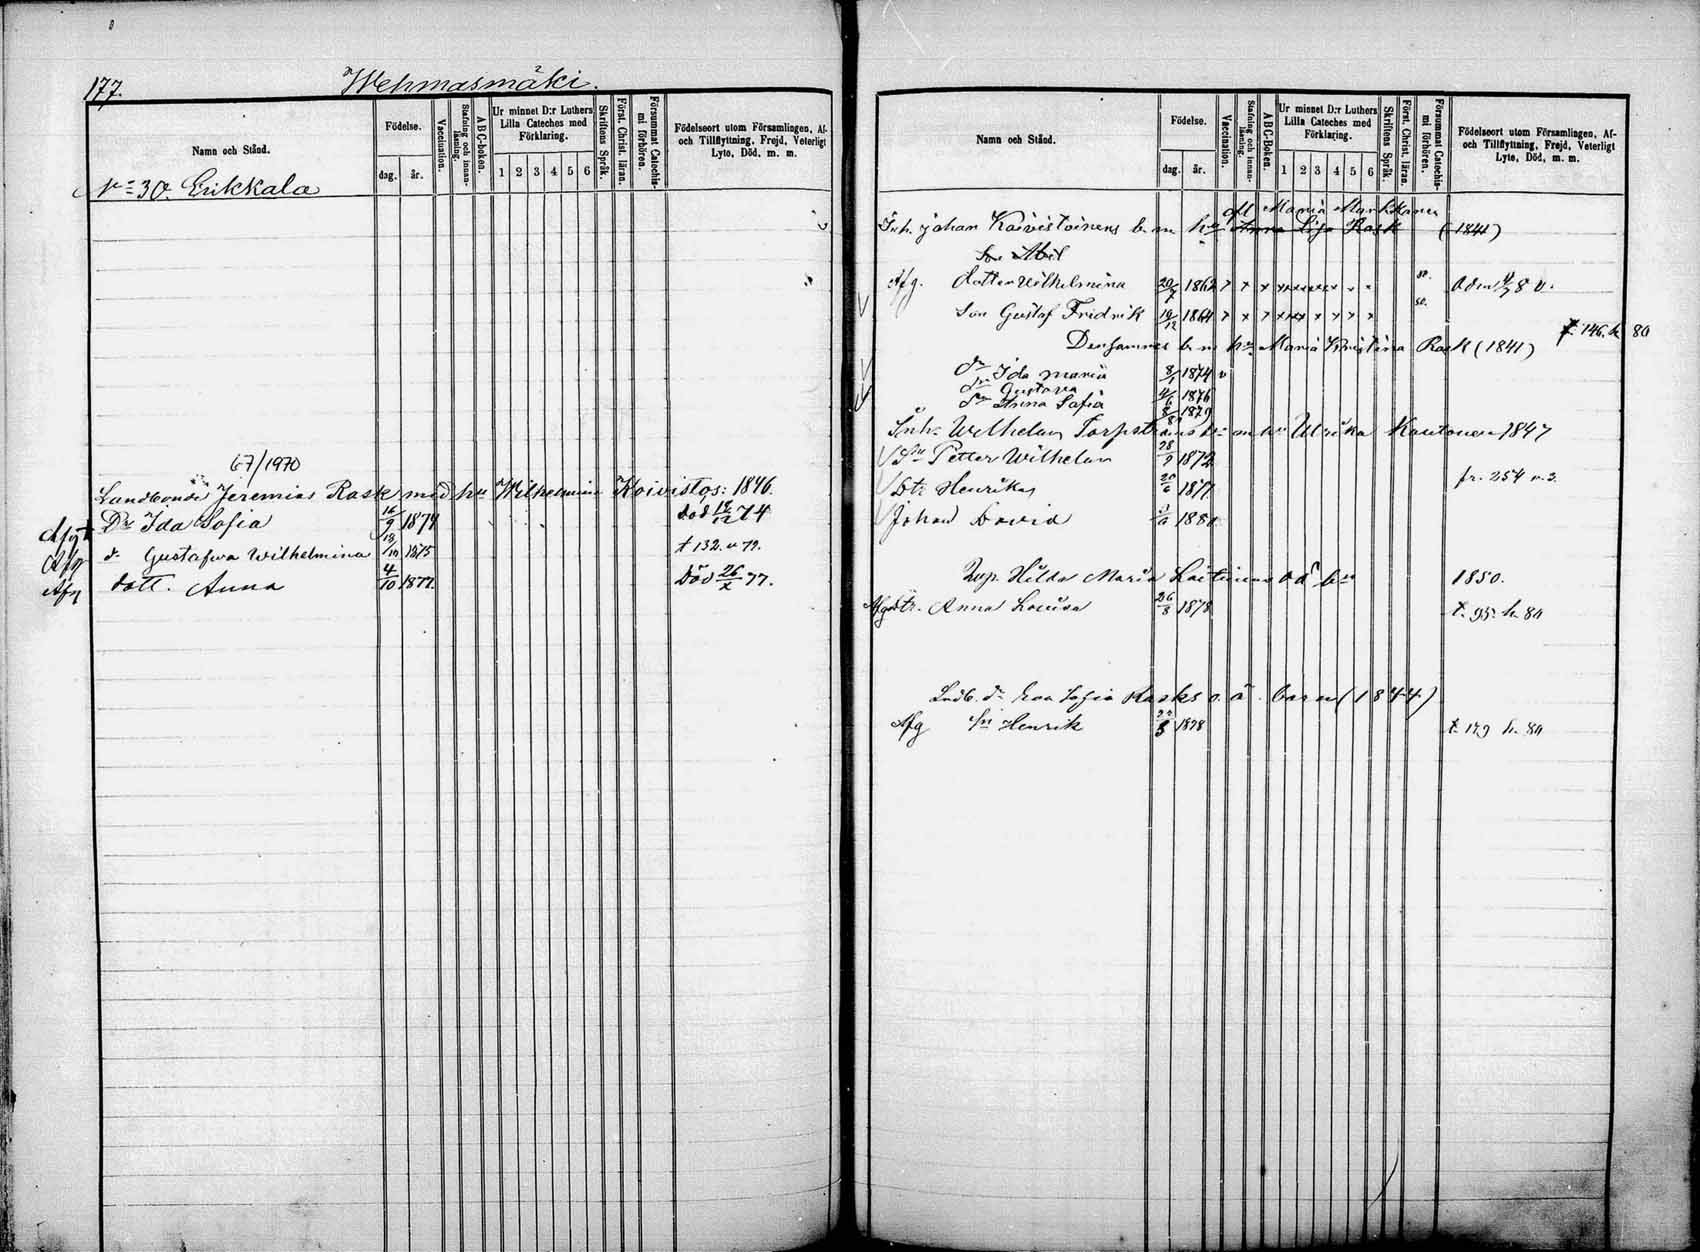 177.
Wehmasmäki.
Namn och Stånd.
Födelse.
dag. år.
Vaccination.
Stafning och innan-läsning.
ABC-boken.
Ur minnet D:r Luthers Lilla Cateches med Förklaring.
1 2 3 4 5 6
Skriftens Språk.
Först. Christ. läran.
Försummat Catechis-mi förhören.
Födelseort utom Församlingen, Af-och Tillflyttning, Frejd, Veterligt Lyte, Död, m. m.
No 30. Erikkala
67/1970
Landbonde Jeremias Rask med hu Wilhelmina Koivistos: 1846.
Afg Dr Ida Sofia 16/9 1874 död 12/12 74
Afg d. Gustafwa Wilhelmina 18/10 1875 t 132. v 79.
Afg dott. Anna 4/10 1877 Död 26/X 77.
Namn och Stånd.
Födelse.
dag. år.
Vaccination.
Stafning och innan-läsning.
ABC-Boken.
Ur minnet D:r Luthers Lilla Cateches med Förklaring.
1 2 3 4 5 6
Skriftens Språk.
Först. Christ. läran.
Försummat Catechis-mi förhören.
Födelseort utom Församlingen, Af-och Tillflyttning, Frejd, Veterligt Lyte, Död, m. m.
Maria Markkanen
Inh. Johan Koivistoinens b. m. hu Anna Lisa Rask (1841)
Son Abel
Afg. dotter Wilhelmina 20/7 1862
Son Gustaf Fridrik 19/12 1864
t. 146. h 80
Densammes b. m. hu Maria Kristina Rask (1841)
dr Ida Maria 8/1 1874 v
dr Gustava 4/6 1876
dr Anna Sofia 8/8 1879
Inh. Wilhelm Torpströms b. m. hu Ulrika Kautonen 1847
Sn Petter Wilhelm 28/9 1872
Dtr Henrika 20/6 1877 fr. 254 v. 3.
Johan David 1880
Inp. Hilda Maria Laitinens o ä bn 1850.
Afg dtr. Anna Lovisa 26/8 1878 t. 95. h. 80
Indb. dr Eva Sofia Rasks o. ä. barn (1844)
Afg sn Henrik 1878 t. 179 h. 80